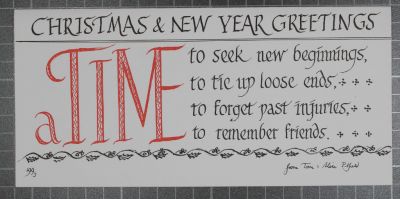 CHRISTMAS & NEW YEAR GREETINGS
a TIME
to seek new beginnings,
to tie up loose ends,
to forget past injuries,
to remember friends.
1993
from Tom &